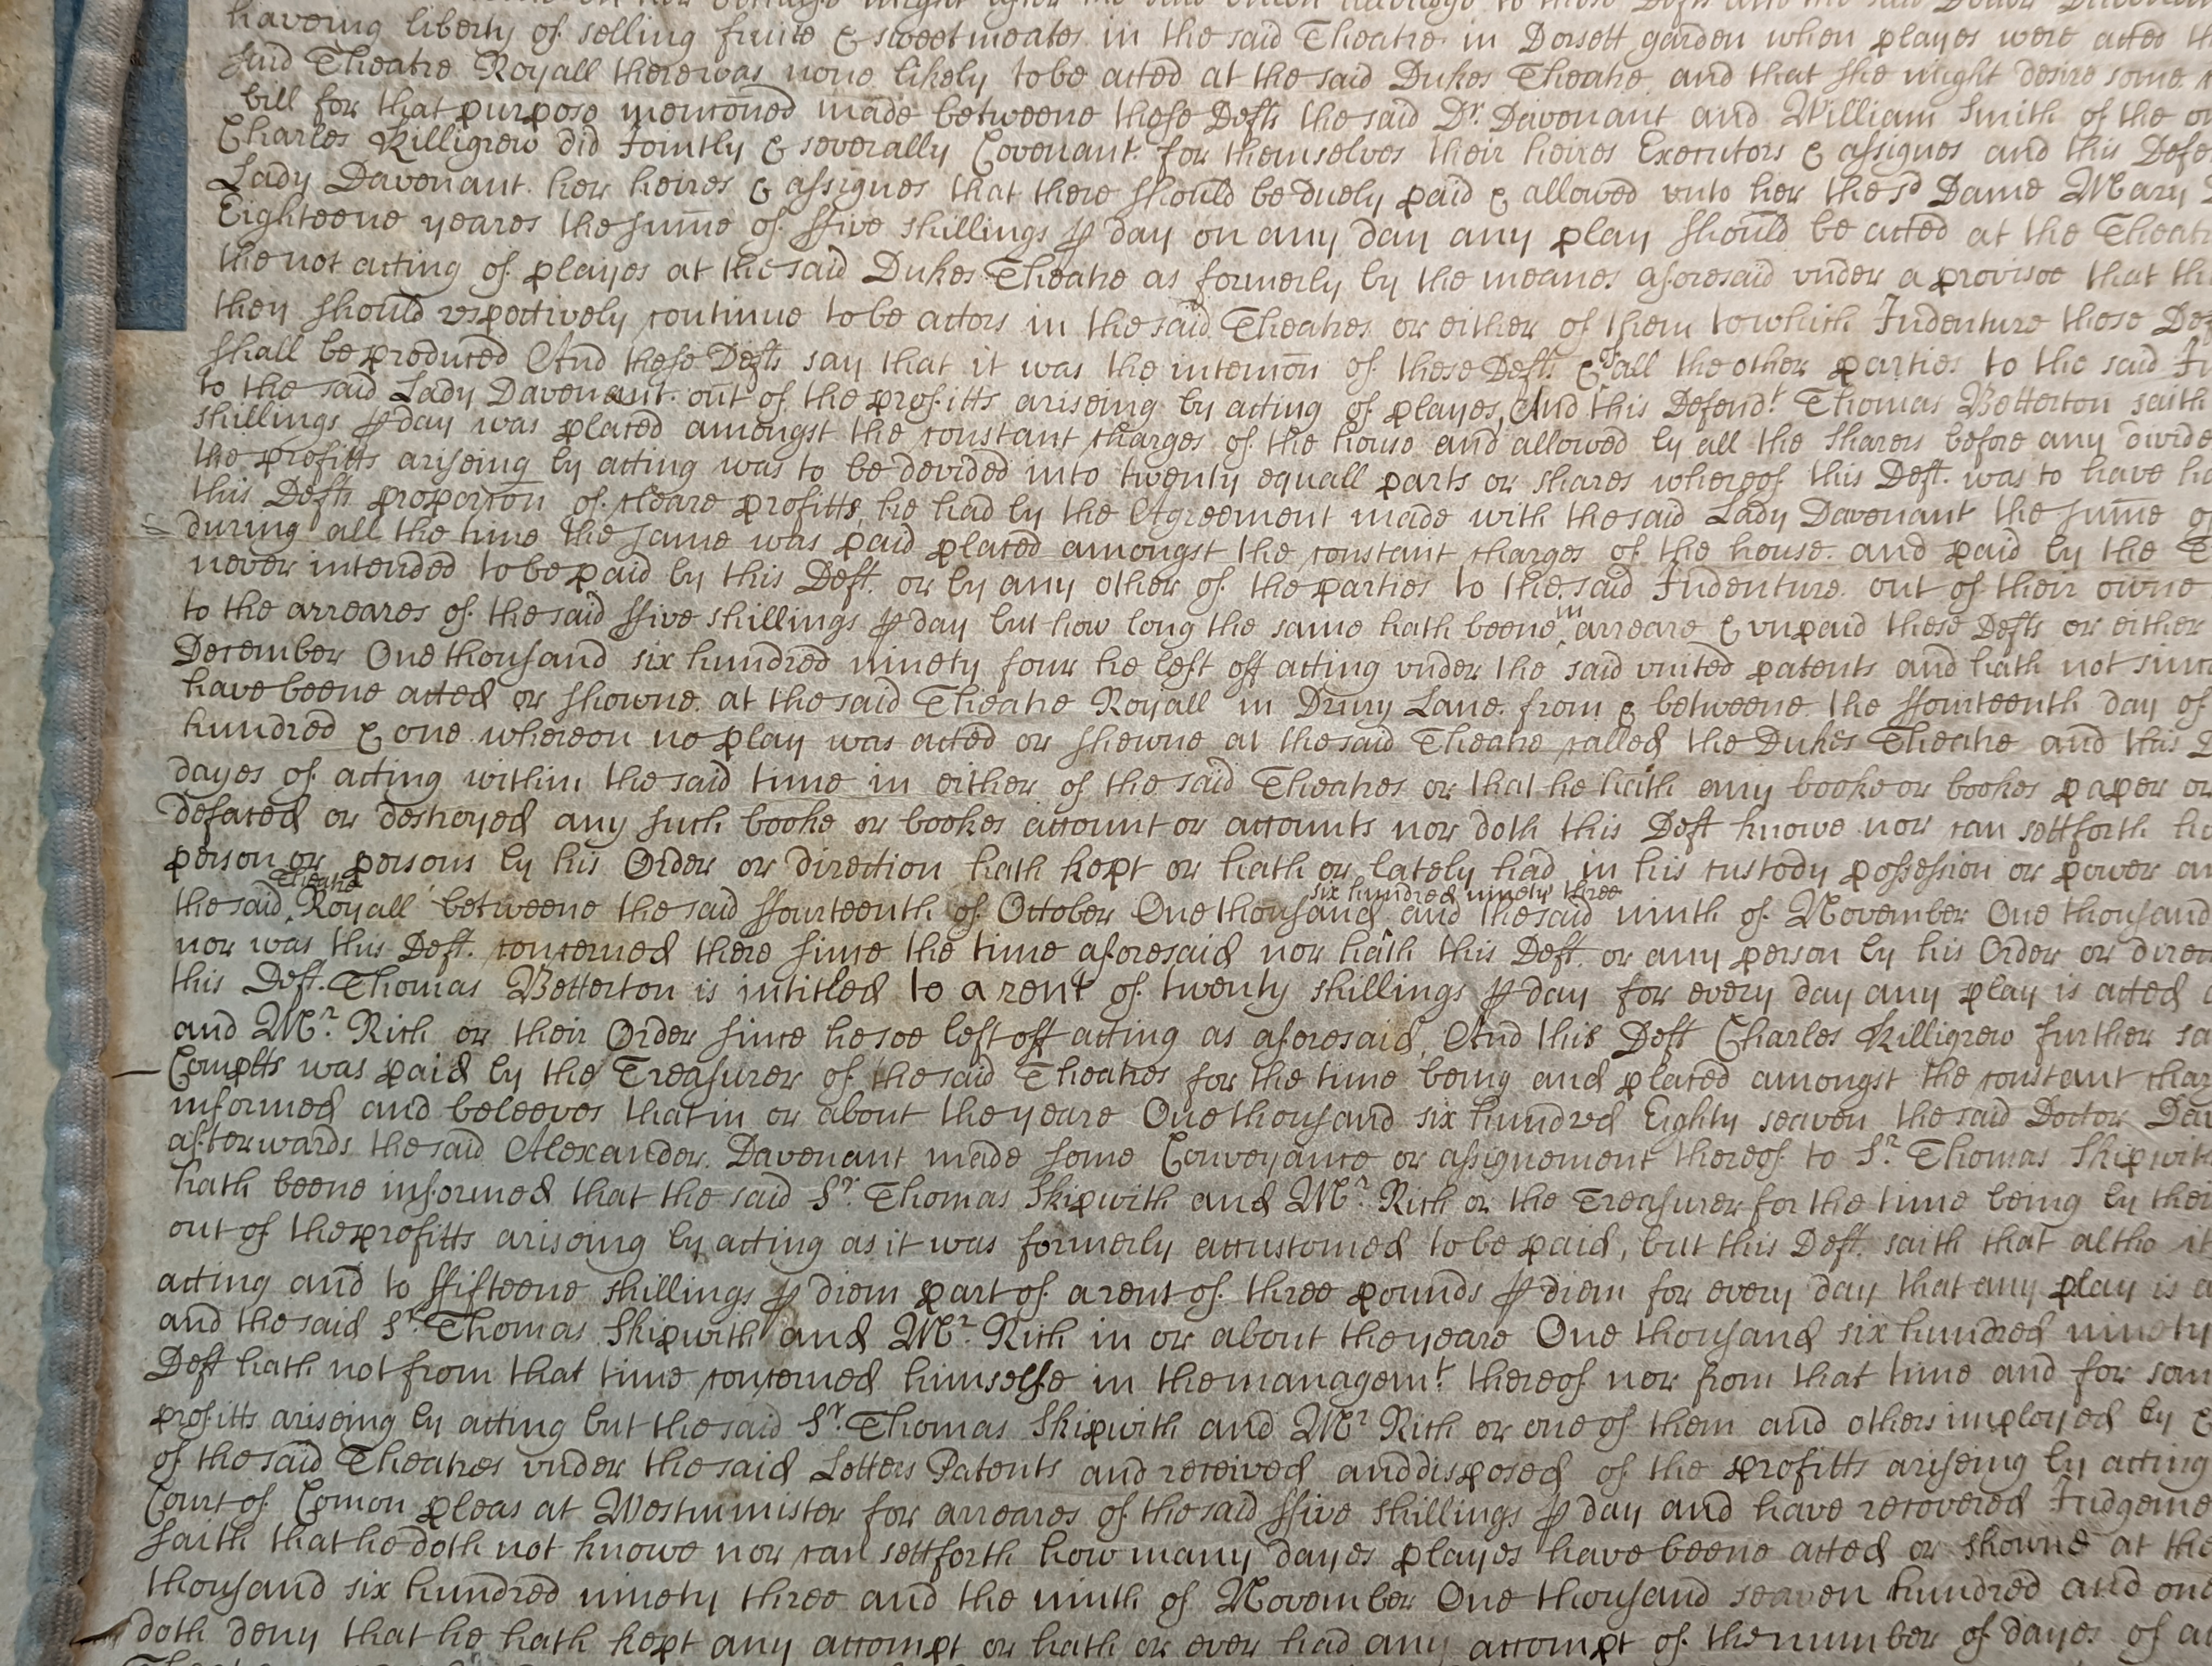 haveing liberty of selling fruite & sweetmeates in the said Theatre in Dorsett garden when playes were acted
said Theatre Royall there was none likely to be acted at the said Dukes Theatre and that she might desire some
bill for that purpose menconed made betweene these Defts the said Dr. Davenant and William Smith of the
Charles Killigrew did Jointly & severally Covenant for themselves their heires Executors & assignes and this
Lady Davenant her heires & assignes that there should be duely paid & allowed vnto her the sd Dame Mary
Eighteene yeares the sume of ffive shillings p day on any day any play should be acted at the
the not acting of playes at the said Dukes Theatre as formerly by the meanes aforesaid vnder a provisoe that
they should respectively continue to be actors in the said Theatres or either of them to which Indenture these
shall be produced And these Defts say that it was the intencon of these Defts & all the other parties to the said
to the said Lady Davenant out of the profitts ariseing by acting of playes, And this Defendt. Thomas Betterton saith
shillings p day was placed amongst the constant charges of the house and allowed by all the sharers before any
the profitts ariseing by acting was to be devided into twenty equall parts or shares whereof this Deft. was to have
this Defts proporcon of cleare profitts, he had by the Agreement made with the said Lady Davenant the sume
during all the time the same was paid placed amongst the constant charges of the house and paid by the
never intended to be paid by this Deft. or by any other of the parties to the said Indenture out of their owne
to the arreares of the said ffive shillings p day but how long the same hath beene in arreare & vnpaid these Defts or either
December One thousand six hundred ninety four he left off acting vnder the said vnited patents and hath not
have beene acted or showne at the said Theatre Royall in Drury Lane from & betweene the ffourteenth day of
hundred & one whereon no play was acted or shewne at the said Theatre called the Dukes Theatre and this
dayes of acting within the said time in either of the said Theatres or that he hath any booke or bookes paper or
defaced or destroyed any such booke or bookes account or accounts nor doth this Deft knowe nor can settforth
person or persons by his Order or direction hath kept or hath or lately had in his custody possession or power
the said Theatre Royall betweene the said ffourteenth of October One thousand six hundred ninety three and the said ninth of November One thousand
nor was this Deft. concerned there since the time aforesaid nor hath this Deft. or any person by his Order or
this Deft. Thomas Betterton is intitled to a rent of twenty shillings p day for every day any play is acted
and Mr. Rich or their Order since he soe left off acting as aforesaid, And this Deft Charles Killigrew further
Compltts was paid by the Treasurer of the said Theatres for the time being and placed amongst the constant
informed and beleeves that in or about the yeare One thousand six hundred Eighty seaven the said Doctor
afterwards the said Alexander Davenant made some Conveyance or assignement thereof to Sr. Thomas
hath beene informed that the said Sr. Thomas Skipwith and Mr. Rich or the Treasurer for the time being by
out of the profitts ariseing by acting as it was formerly accustomed to be paid, but this Deft. saith that altho it
acting and to ffifteene shillings p diem part of a rent of three pounds p diem for every day that any play is
and the said Sr. Thomas Skipwith and Mr. Rich in or about the yeare One thousand six hundred ninety
Deft hath not from that time concerned himselfe in the managemt. thereof nor from that time and for
profitts ariseing by acting but the said Sr. Thomas Skipwith and Mr. Rich or one of them and others imployed by
of the said Theatres vnder the said Letters Patents and received and disposed of the profitts ariseing by acting
Court of Comon pleas at Westminster for arreares of the said ffive shillings p day and have recovered
saith that he doth not knowe nor can settforth how many dayes playes have beene acted or showne at the
thousand six hundred ninety three and the ninth of November One thousand seaven hundred and one
doth deny that he hath kept any accompt or hath or ever had any accompt of the number of dayes of